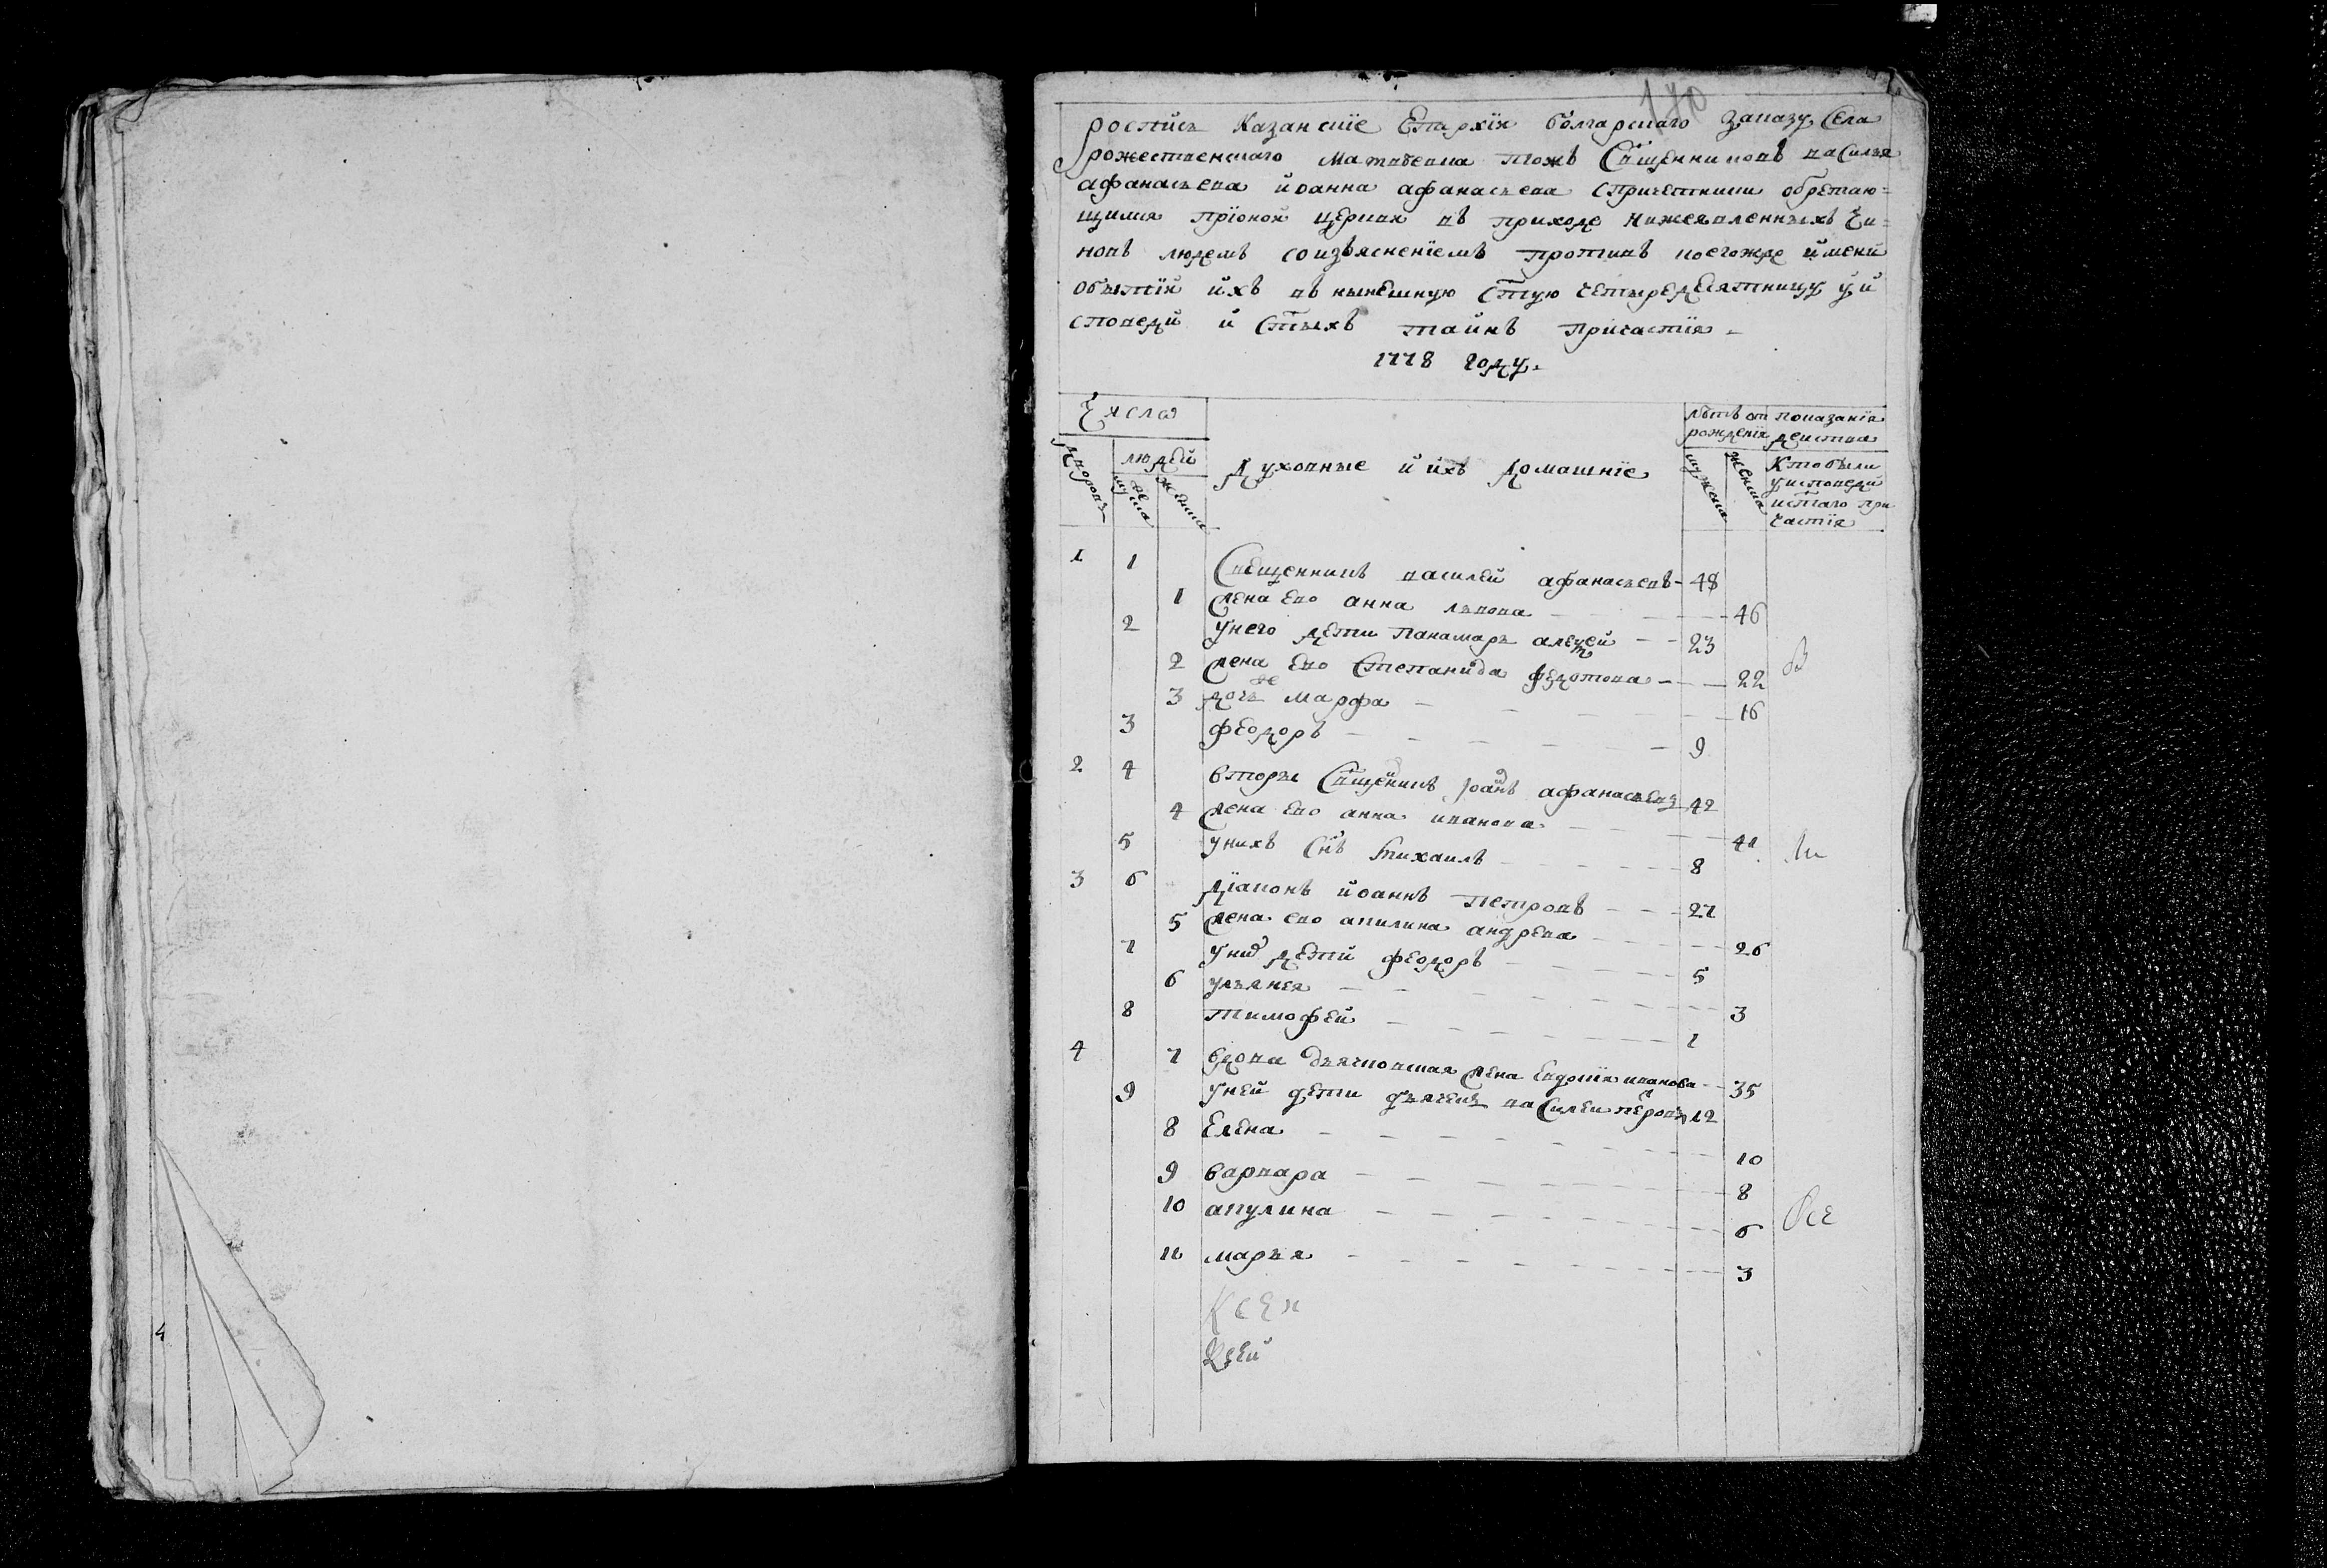 170
роспись Казанскiе Епархiи болгарскаго заказу Села
рожественскаго Матвеевка тожъ Сщенниковъ василья
афанасьева иоанна афанасьева спричетники обретаю=
щимися прiоной церкви въ приходе нижеявленныхъ Чи=
новъ людемъ соизъяснениемъ противъ коегождо имени
обытiи ихъ въ нынешную стую четыредесятницу у и
споведи и стыхъ таинъ причастiя
1778 году
Числа
летъ от показанiя
рожденiя действа
людей
дворовъ
мужеска
женска
Духовные и ихъ домашнiе
мужеска
женска
Кто были
у исповеди
и стаго при
частiя
1 1 Священникъ василей афанасьевъ 48
1 жена ево анна львова 46
2 у него дети панамарь алексей 23
2 жена ево Степанида федотова 22
3 дочь марфа 16
3 феодоръ 9
2 4 вторы Сщенникъ Iоанъ афанасьевъ 42
4 жена ево анна иванова 41
5 у нихъ снъ михаилъ 8
3 6 дiаконъ иоаннъ петровъ 27
5 жена ево акилина андрева 26
7 у них дети феодоръ 5
6 ульянея 3
8 тимофей 1
4 7 вдова дьячковская жена Евдокiя иванова 35
9 у ней дети дьячекъ василеи петровъ 12
8 Елена 10
9 варвара 8
10 акулина 6
11 марья 3
Бы
ли
Все
Ксен